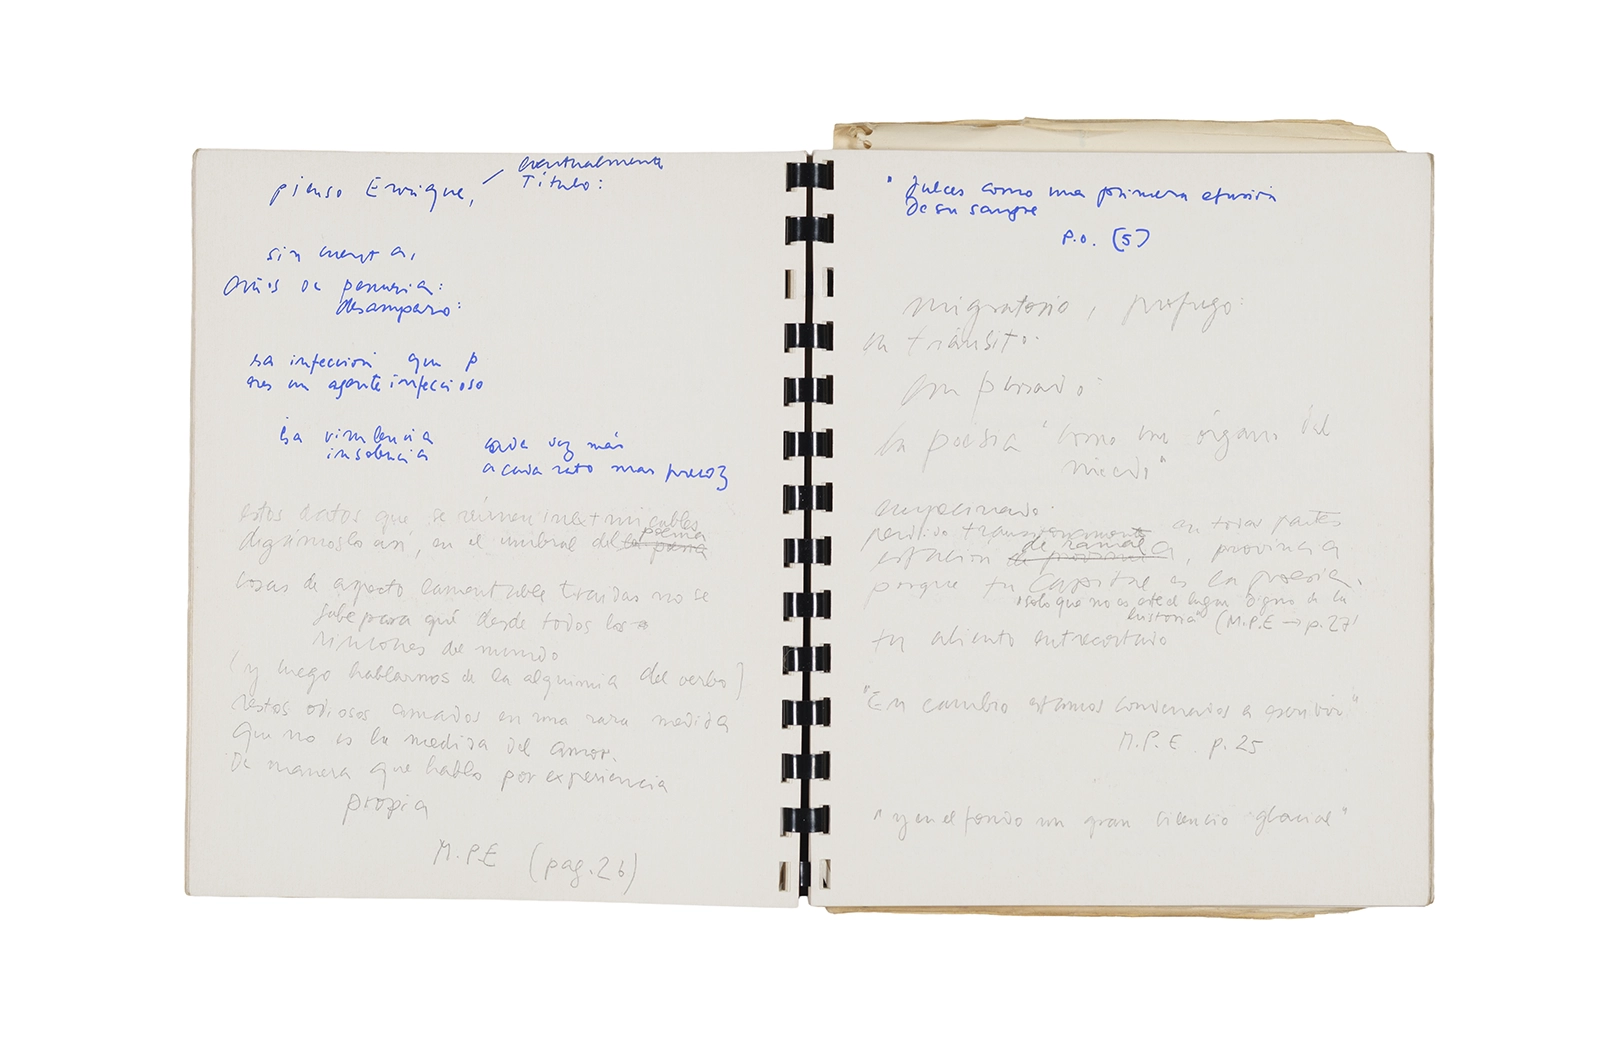 pienso Enrique,
eventualmente
Título:
sin cuenta,
años de penuria:
desamparo:
la infección que p
eres un agente infeccioso
la virulencia
insolencia
cada vez más
a cada rato mas precoz
estos datos que se reúnen inextricables
digámoslo así, en el umbral del la poesía
poema
cosas de aspecto lamentable traídas no se
sabe para qué desde todos los
rincones del mundo
(y luego hablarnos de la alquimia del verbo)
restos odiosos amados en una rara medida
que no es la medida del amor.
De manera que hablo por experiencia
propia
M.P.E (pag. 26)
" dulces como una primera efusión
de su sangre
P.O. (5)
migratorio, prófugo:
en tránsito:
la poesía "como un órgano del
miedo"
empecinado:
perdido en todas partes
de ramal
estación, provincia
porque tu Capital es la poesía.
"solo que no es este el lugar digno de la
historia" (M.P.E → p.27)
tu aliento entrecortado
"En cambio estamos condenados a escribir"
M.P.E. p. 25
"y en el fondo un gran silencio glacial"